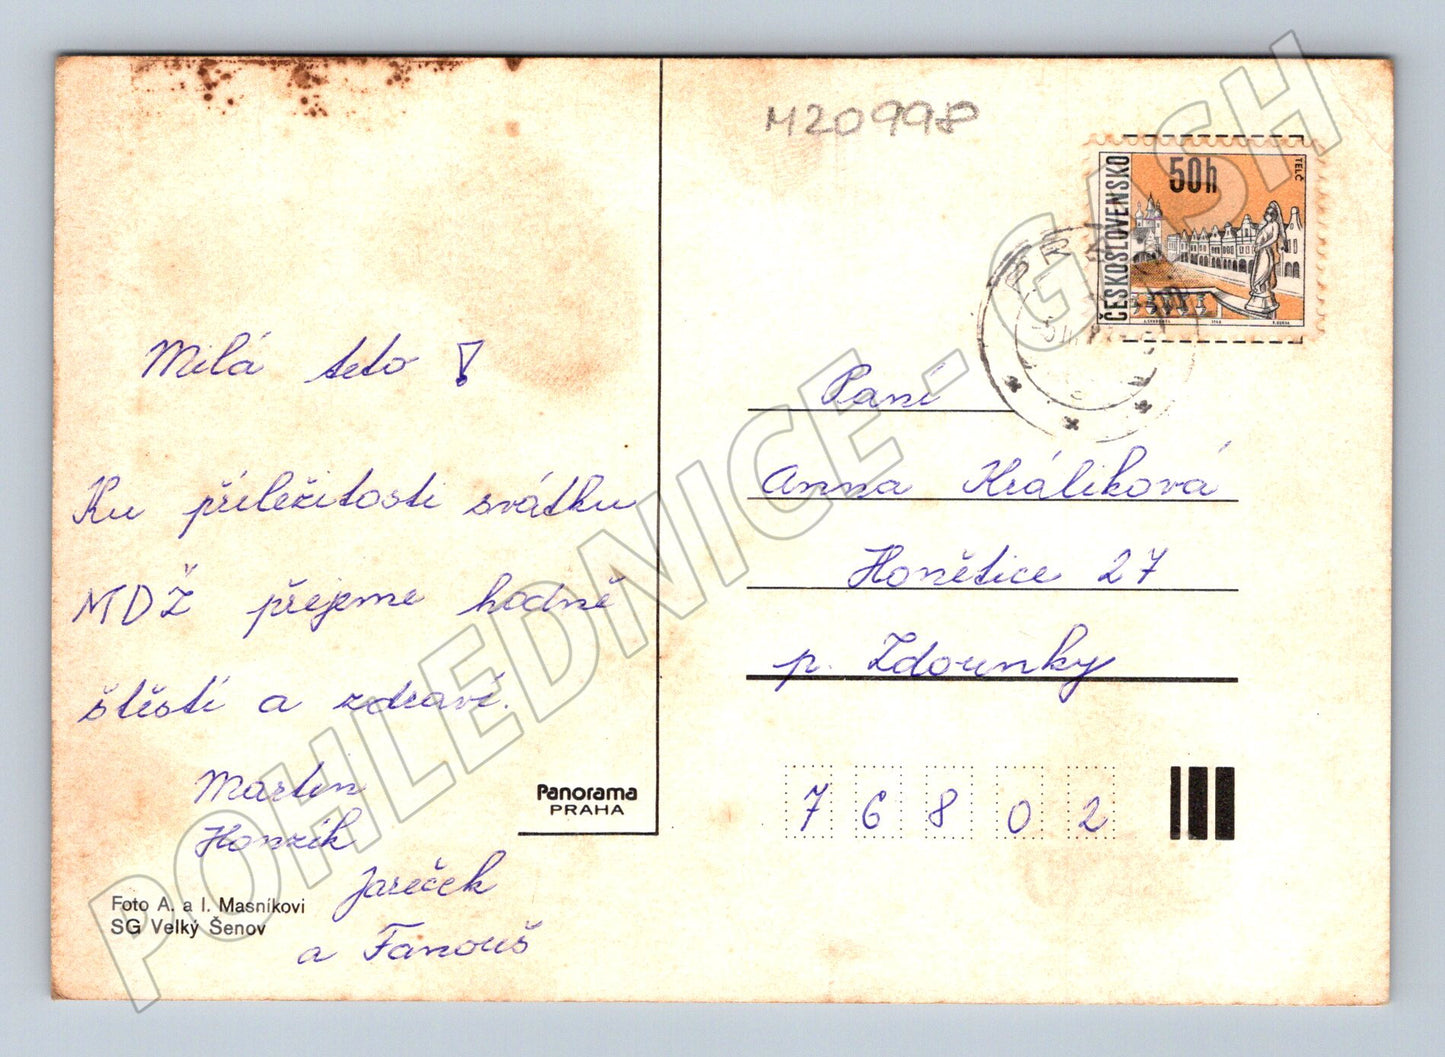 M20998
ČESKOSLOVENSKO
50h
TELČ
Milá teto!
Ku příležitosti svátku
MDŽ přejeme hodně
štěstí a zdraví.
Martin
Honzík
Jareček
a Fanouš
Panorama
PRAHA
Foto A. a I. Masníkovi
SG Velký Šenov
Paní
Anna Králiková
Honětice 27
p. Zdounky
76802
POHLEDNICE - GASH